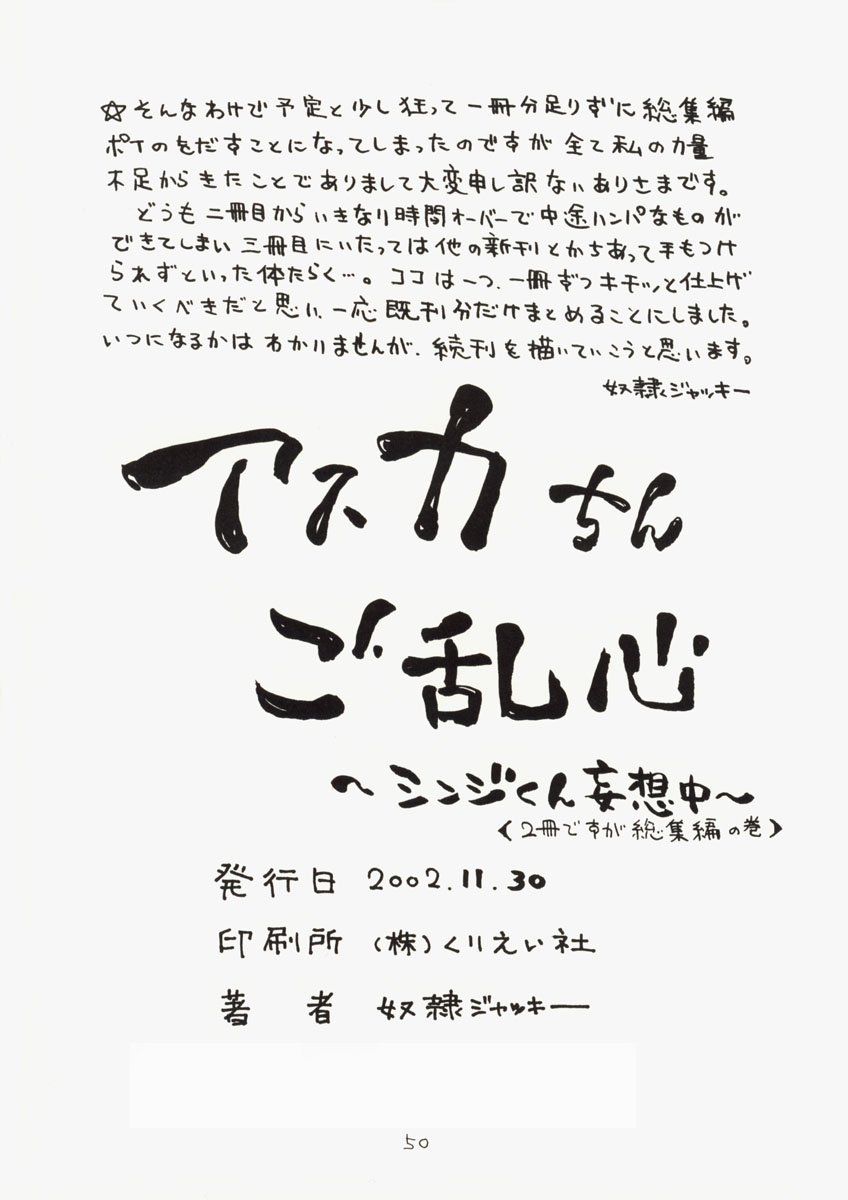 ☆そんなわけで予定と少し狂って一冊分足りずに総集編
ポイのをだすことになってしまったのですが全て私の力量
不足からきたことでありまして大変申し訳ないありさまです。
どうも二冊目からいきなり時間オーバーで中途ハンパなものが
できてしまい三冊目にいたっては他の新刊とかちあって手もつけ
られずといった体たらく…。ココは一つ、一冊ずつキチッと仕上げ
ていくべきだと思い、一応既刊分だけまとめることにしました。
いつになるかはわかりませんが、続刊を描いていこうと思います。
奴隷ジャッキー
アスカちん
ご乱心
～シンジくん妄想中～
《2冊ですが総集編の巻》
発行日 2002.11.30
印刷所 (株)くりえい社
著者 奴隷ジャッキー
50